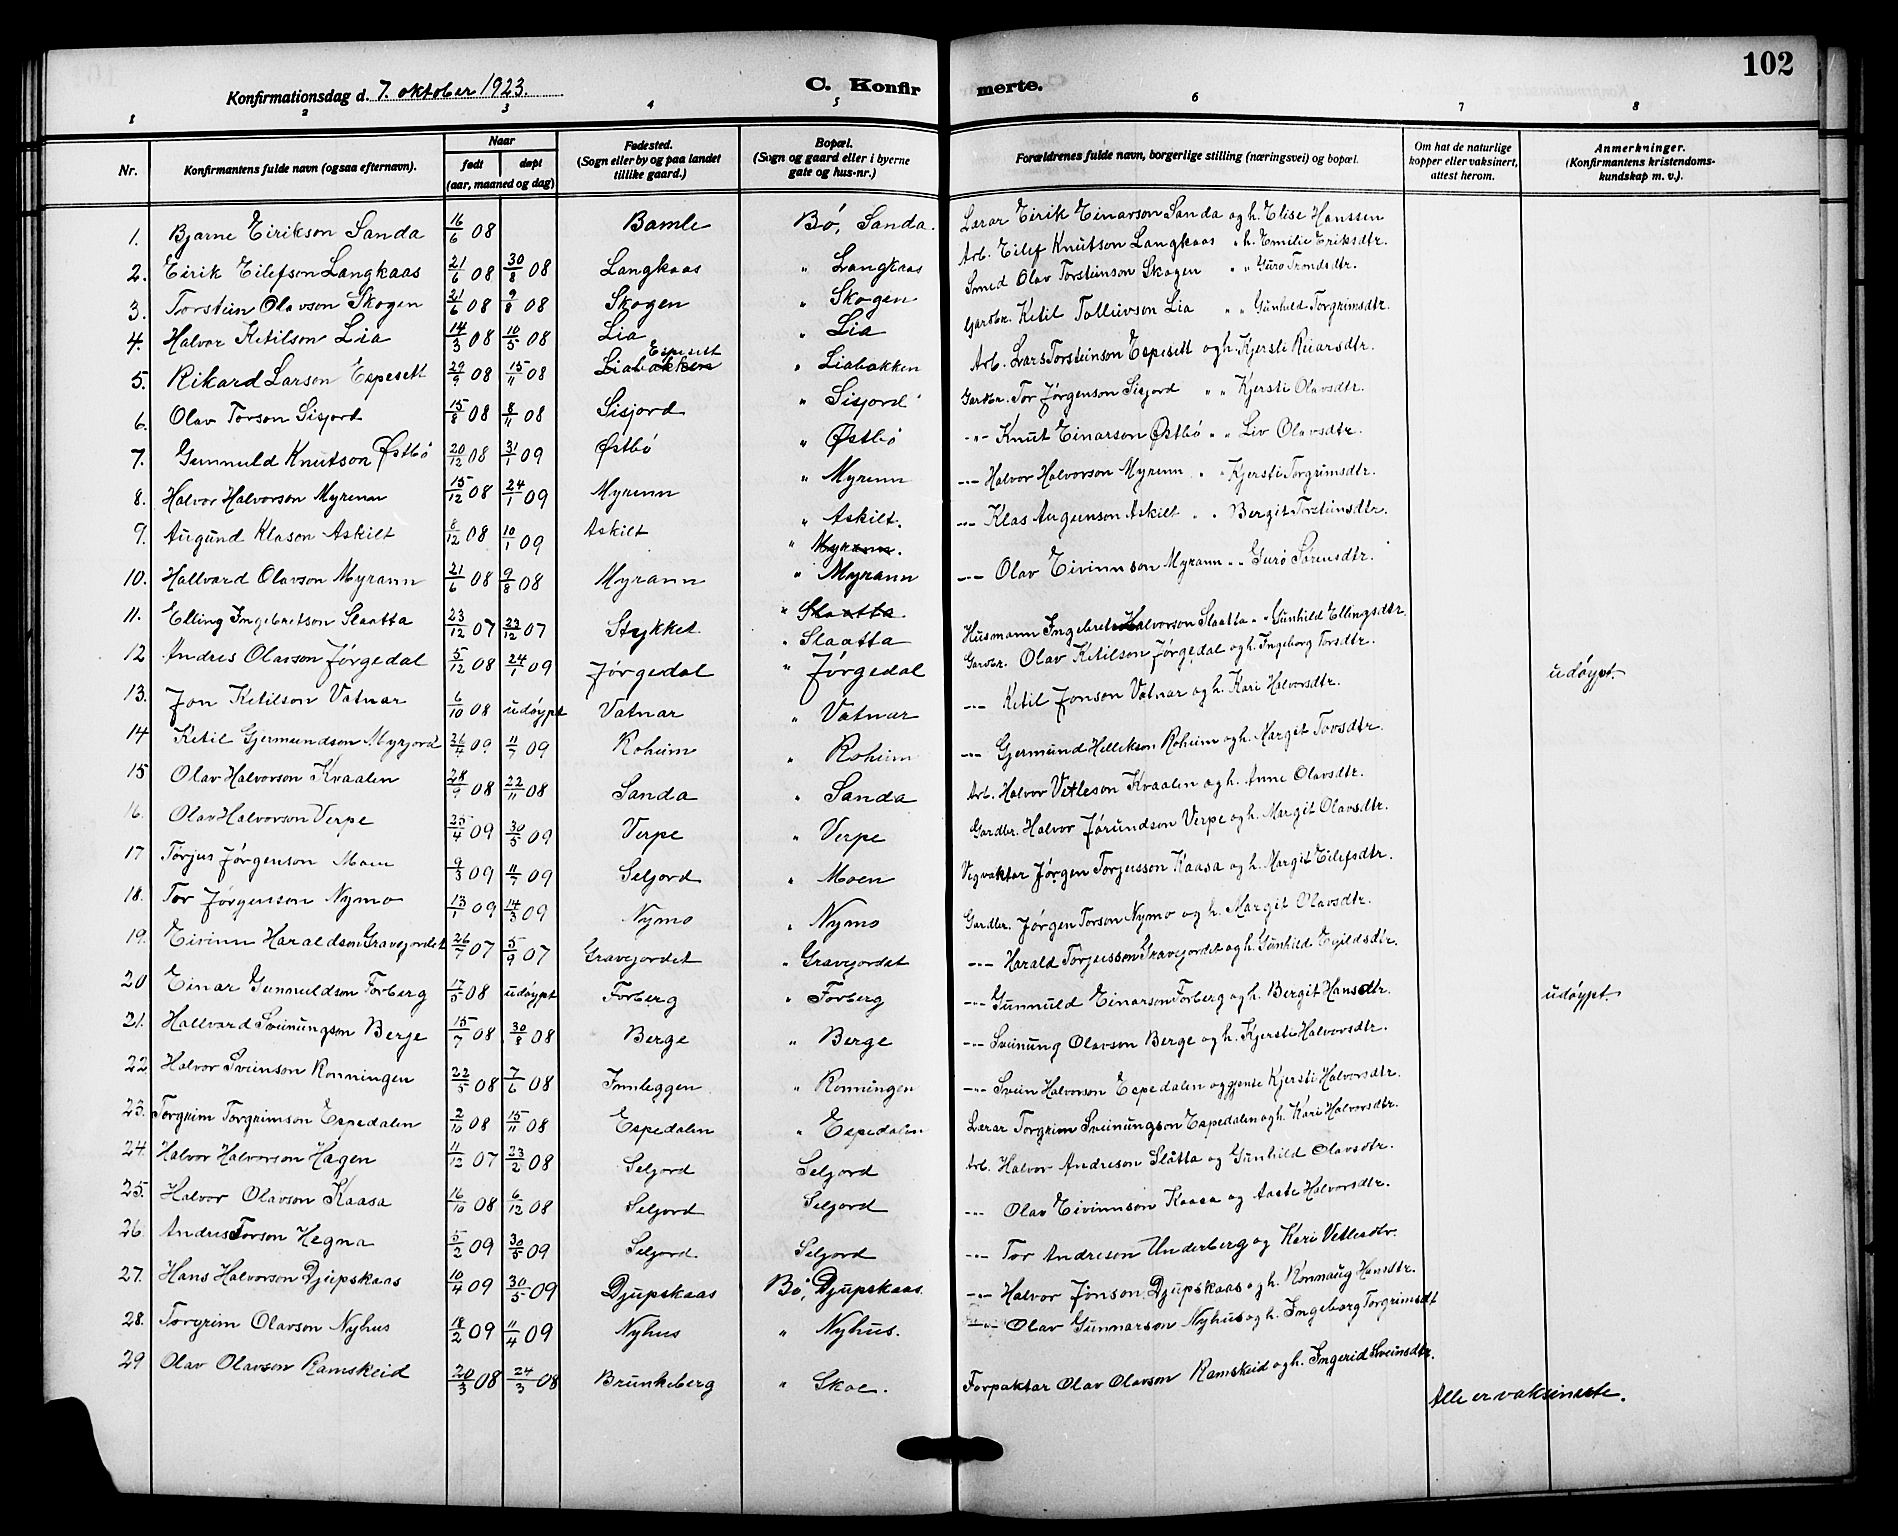 102
Konfirmationsdag d. 7. oktober 1923.
C. Konfirmerte.
1 2 3 4 5 6 7 8
Nr. Konfirmantens fulde navn (ogsaa efternavn). Naar født døpt (aar, maaned og dag) Fødested. (Sogn eller by og paa landet tillike gaard.) Bopæl. (Sogn og gaard eller i byerne gate og hus-nr.) Forældrenes fulde navn, borgerlige stilling (næringsvei) og bopæl. Om hat de naturlige kopper eller vaksinert, attest herom. Anmerkninger. (Konfirmantens kristendoms-kundskap m. v.).
1. Bjarne Eirikson Sanda 16/6 08 Bamle Bó, Sanda. Lærar Eirik Einarson Sanda og h. Elise Hanssen
2. Eirik Eilefson Langkaas 21/6 08 30/8 08 Langkaas " Langkaas Arb. Eilef Knutson Langkaas " h. Emilie Eriksdtr.
3. Torstein Olavson Skogen 21/6 08 9/8 08 Skogen " Skogen Smed Olav Torsteinson Skogen " " Guro Trondsdtr.
4. Halvor Ketilson Lia 14/3 08 10/5 08 Lia " Lia Gardbr. Ketil Tolleivson Lia " " Gunhild Torgrimsdtr.
5. Rikard Larson Espesett 29/9 08 15/11 08 Liabakken Espesett " Liabakken Arb. Lars Torsteinson Espesett og h. Kjersti Reiarsdtr.
6. Olav Torson Sisjord 15/8 08 8/11 08 Sisjord " Sisjord Gardbr. Tor Jórgenson Sisjord " " Kjersti Olavsdtr.
7. Gunnuld Knutson Østbó 20/12 08 31/1 09 Østbó " Østbó -"- Knut Einarson Østbó " " Liv Olavsdtr.
8. Halvor Halvorson Myrenn 15/12 08 24/1 09 Myrenn " Myrenn -"- Halvor Halvorson Myrenn " " Kjersti Torgrimsdtr.
9. Augund Klason Askilt 8/12 08 10/1 09 Askilt " Askilt. -"- Klas Augunson Askilt " " Bergit Torsteinsdtr.
" Myrann.
10. Hallvard Olavson Myrann 21/6 08 9/8 08 Myrann " Myrann -"- Olav Eivinnson Myrann " " Guro Sørensdtr.
" Slaatta
11. Elling Ingebretson Slaatta 23/12 07 23/12 07 Stykket " Slaatta Husmann Ingebret Halvorson Slaatta " " Gunhild Ellingsdtr.
12 Andres Olavson Jórgedal 5/12 08 24/1 09 Jórgedal " Jórgedal Gardbr. Olav Ketilson Jórgedal og h. Ingeborg Torsdtr.
13. Jon Ketilson Vatnar 6/10 08 udóypt Vatnar " Vatnar -"- Ketil Jonson Vatnar og h. Kari Halvorsdtr. udóypt.
14 Ketil Gjermundson Myrjord 26/4 09 11/7 09 Roheim " Roheim -"- Gjermund Hellekson Roheim og h. Margit Tovsdtr.
15 Olav Halvorson Kvaalen 28/9 08 22/11 08 Sanda " Sanda Arb. Halvor Vetleson Kvaalen og h. Anne Olavsdtr.
16. Olav Halvorson Verpe 25/4 09 30/5 09 Verpe " Verpe Gardbr. Halvor Jórundson Verpe og h. Margit Olavsdtr.
17 Torjus Jórgenson Moen 9/3 09 11/7 09 Seljord " Moen Vegvaktar Jórgen Torjusson Kaasa og h. Margit Eilefsdtr.
18. Tor Jórgenson Nymo 13/1 09 14/3 09 Nymo " Nymo Gardbr. Jórgen Torson Nymo og h. Margit Olavsdtr.
19. Eivinn Haraldson Gravejordet 26/7 07 5/9 07 Gravejordet " Gravejordet -"- Harald Torjusson Gravejordet og h. Gunhild Egildsdtr.
20 Einar Gunnuldson Forberg 17/5 08 udóypt Forberg " Forberg -"- Gunnuld Einarson Forberg og h. Bergit Hansdtr. udóypt.
21. Hallvard Sveinungson Berge 15/7 08 30/8 08 Berge " Berge -"- Sveinung Olavson Berge og h. Kjersti Halvorsdtr.
22 Halvor Sveinson Ronningen 22/5 08 7/6 08 Innleggen " Ronningen -"- Svein Halvorson Espedalen og gjente Kjersti Halvorsdtr.
23. Torgrim Torgrimson Espedalen 2/10 08 15/11 08 Espedalen " Espedalen Lærar Torgrim Sveinungson Espedalen og h. Kari Halvorsdtr.
24. Halvor Halvorson Hagen 11/12 07 23/2 08 Seljord Seljord Arb. Halvor Andreson Slåtta og Gunhild Olavsdtr.
25. Halvor Olavson Kaasa 16/10 08 6/12 08 Seljord Seljord -"- Olav Eivinnson Kaasa og Aaste Halvorsdtr.
26. Andres Torson Hegna 5/2 09 30/5 09 Seljord. Seljord -"- Tor Andreson Underberg og Kari Vetlesdtr.
27. Hans Halvorson Djupskaas 10/4 09 30/5 09 Djupskaas Bó, Djupskaas. -"- Halvor Jonson Djupskaas og h. Ronnaug Hansdtr.
28. Torgrim Olavson Nyhus 18/2 09 11/4 09 Nyhus " Nyhus. -"- Olav Gunnarson Nyhus og h. Ingeborg Torgrimsdt
29 Olav Olavson Ramskeid 20/3 08 24/3 08 Brunkeberg " Skoe. Forpaktar Olav Olavson Ramskeid og h. Ingerid Sveinsdtr.
Alle er vaksinerte.